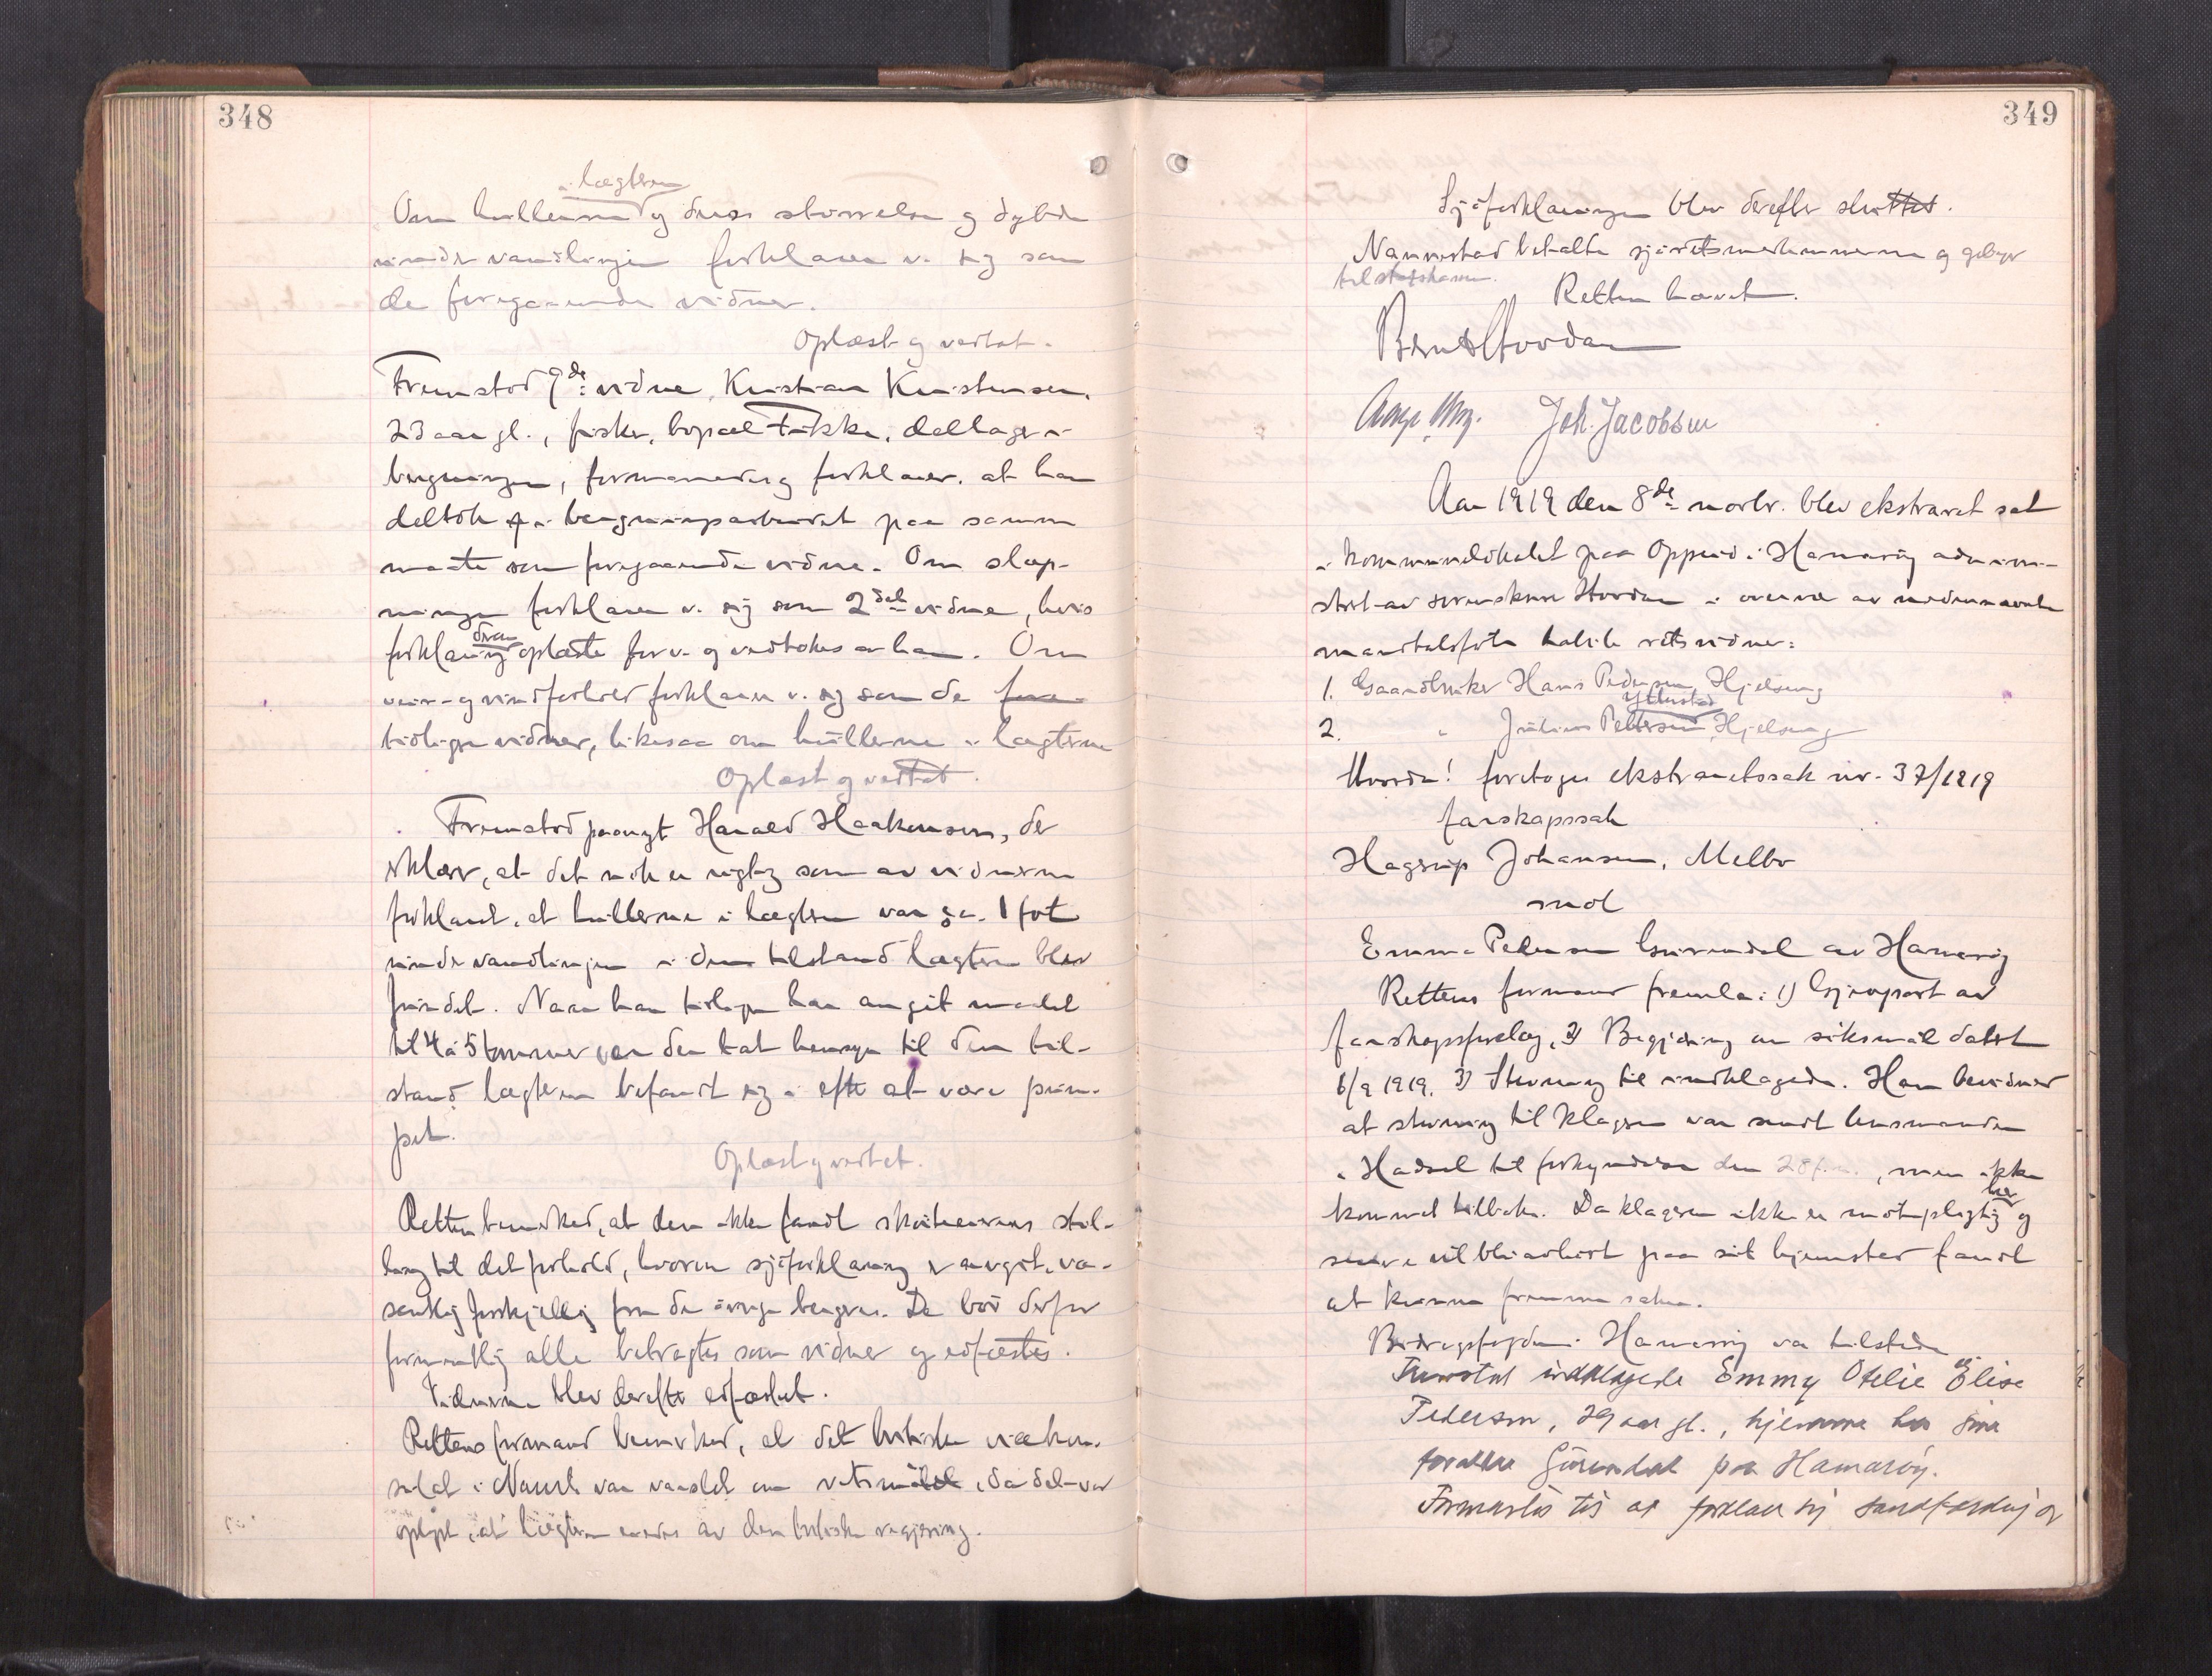 348
i lægteren
Om hullerne og deres størrelse og dybde
under vandlinjen forklarer v. sig som
de foregaaende vidner.
Oplæst og vedtat.
Fremstod 9de vidne, Kristian Kristensen,
23 aar gl., fisker, bopæl, deltager i
bergningen, formanedes og forklarer, at han
deltok i bergningsarbeidet paa samme
maate som foregaaende vidne. Om slæp-
ningen forklarer v. sig som 2det vidne, hvis
derom
forklaring oplæstes for v. og vedtokes av ham. Om
veir- og vindforhold forklarer v. sig som de fore-
tidligere vidner, likesaa om hullerne i lægteren
Oplæst og vedtat.
Fremstod paanyt Harald Haakensen, der
erklærer, at det nok er rigtig som av vidnerne
forklaret, at hullerne i lægteren var ca. 1 fot
under vandlinjen i den tilstand lægteren blev
fundet. Naar han tidligere har angit maalet
til 4 à 5 tommer var der tat hensyn til den til-
stand lægteren befandt sig i efter at være pum-
pet.
Oplæst og vedtat.
Retten bemerked, at den ikke fandt stil-
ling til det forhold, hvorom sjøforklaring er avgit, væ-
sentlig forskjellig fra de øvrige bergeres. De bør derfor
formentlig alle betragtes som vidner og edfæstes.
Vidnerne blev derefter edfæstet.
Rettens formand bemerked, at det britiske vicekon-
sulat i Narvik var varslet om retsmøtet, da det var
oplyst, at lægteren eiedes av den britiske regjering.
349
Sjøforklaringen blev derefter sluttet.
Nannestad betalte sjøretsmedlemmerne og gebyr
til statskassen.
Retten hævet.
Bernt Hovdan
Joh. Jacobsen
Aar 1919 den 8de novbr. blev ekstraret sat
i kommunelokalet paa Oppeid i Hamarøy admini-
stret av sorenskriver Hovdan i overvær av nedennævnte
mandtalsførte habile retsvidner:
1. Gaardbruker Hans Pedersen, Hjelseng
Yttersted
2. " Julius Pettersen, Hjelseng
Hvorda! foretoges ekstraretssak nr. 37/1919
farskapssak
Hagerup Johansen, Melbo
mot
Emma Pedersen Grindal av Hamarøy
Rettens formand fremla: 1) Gjenpart av
farskapsforelæg, 2) Begjæring om søksmål datert
6/9 1919. 3) Stevning til indklagede. Han bevidner
at stevning til klageren var sendt lensmanden
i Hadsel til forkyndelse den 28, men ikke
her
kommet tilbake. Da klageren ikke er møtepligtig og
senere vil bli avhørt paa sit hjemsted fandt
at kunne fremme saken.
Bidragsfogden i Hamarøy var tilstede
Fremstod indklagede Emmy Otelie Elise
Pedersen, 29 aar gl., hjemme hos sine
forældre Grindal paa Hamarøy.
Formantes til at forklare sig sandfærdig og